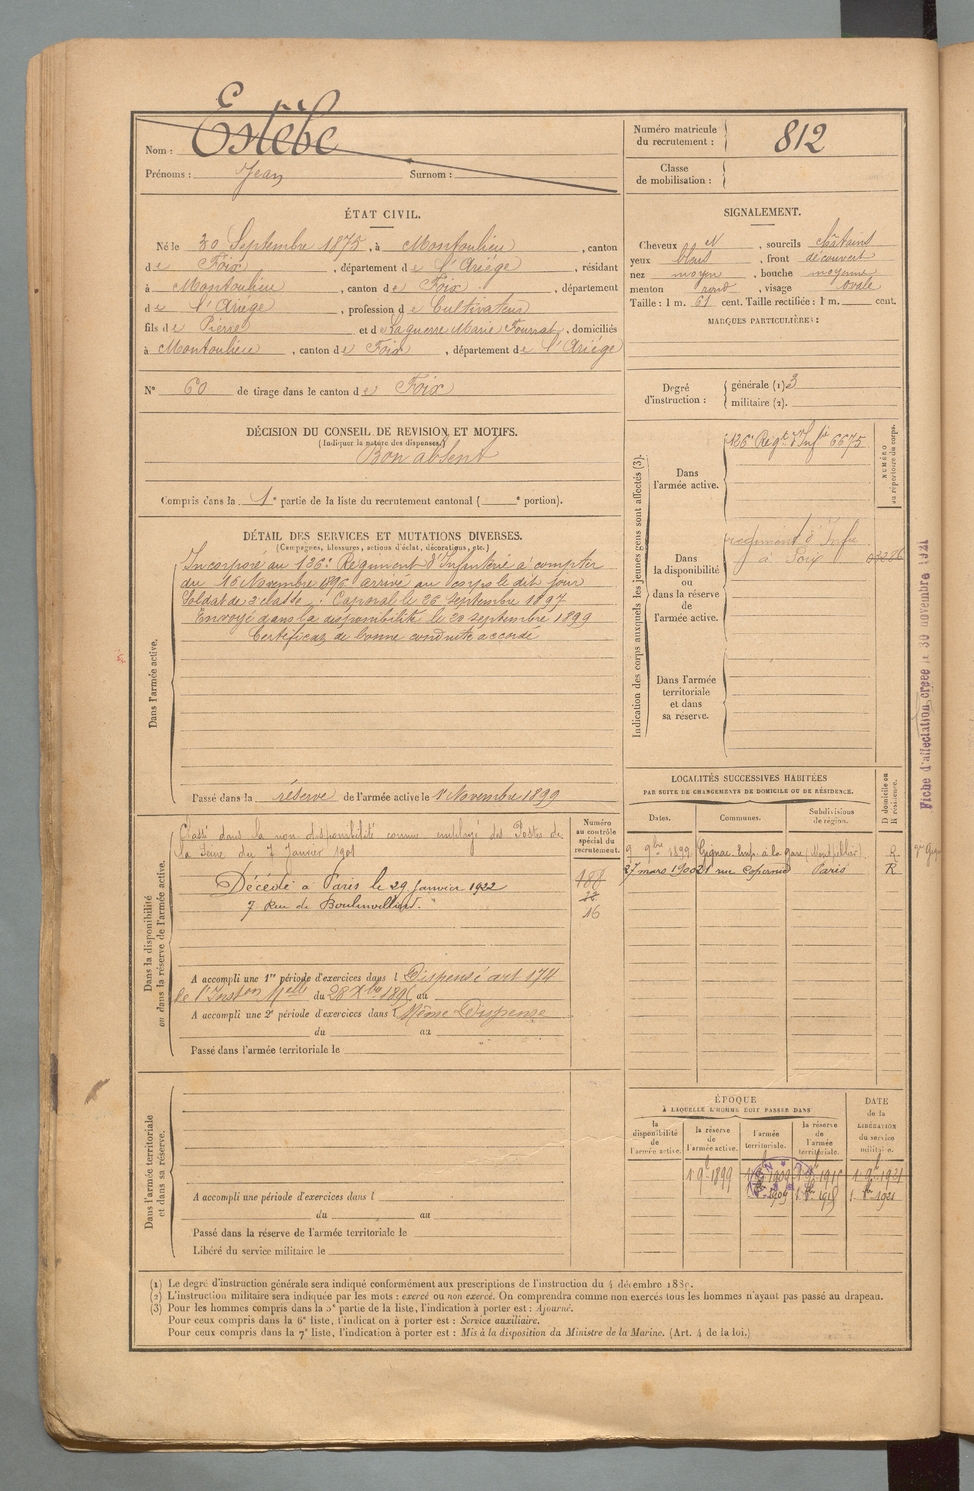 Nom : Estèbe
Prénoms : Jean Surnom :
Numéro matricule du recrutement : 812
Classe de mobilisation :
ÉTAT CIVIL.
Né le 30 Septembre 1875, à Montoulieu, canton
de Foix, département de l'Ariége, résidant
à Montoulieu, canton de Foix, département
de l'Ariége, profession de Cultivateur
fils de Pierre et de Laguerre Marie Fournat, domiciliés
à Montoulieu, canton de Foix, département de l'Ariége
N° 60 de tirage dans le canton de Foix
SIGNALEMENT.
Cheveux N, sourcils châtains
yeux bleus, front découvert
nez moyen, bouche moyenne
menton rond, visage ovale
Taille : 1 m. 61 cent. Taille rectifiée : 1 m. cent.
MARQUES PARTICULIÈRES :
Degré d'instruction : générale (1). 3
militaire (2).
DÉCISION DU CONSEIL DE REVISION ET MOTIFS.
(Indiquer la nature des dispenses.)
Bon absent
Compris dans la 1e partie de la liste du recrutement cantonal ( e portion).
DÉTAIL DES SERVICES ET MUTATIONS DIVERSES.
(Campagnes, blessures, actions d'éclat, décorations, etc.)
Dans l'armée active.
Incorporé au 126e Régiment d'Infanterie à compter
du 16 Novembre 1896 arrivé au corps le dit jour
Soldat de 2e classe. Caporal le 26 Septembre 1897
Envoyé dans la disponibilité le 20 septembre 1899
Certificat de bonne conduite accordé
Passé dans la réserve de l'armée active le 1er Novembre 1899
Indication des corps auxquels les jeunes gens sont affectés (3).
Dans l'armée active.
126e Régt d'Infie 6675
NUMÉRO au répertoire du corps.
Dans la disponibilité ou dans la réserve de l'armée active.
régiment d'Infie
à Foix
Dans l'armée territoriale et dans sa réserve.
Fiche d'affectation créée le 30 novembre 1921
Dans la disponibilité ou dans la réserve de l'armée active.
Classé dans la non disponibilité comme employé des Postes de
la Seine du 7 Janvier 1901
Décédé à Paris le 29 Janvier 1922
7 Rue de Boulainvilliers.
Numéro au contrôle spécial du recrutement.
188
16
A accompli une 1re période d'exercices dans l Dispensé art 174
de l'Inston Melle du 28 Xbre 1895 au
A accompli une 2e période d'exercices dans l Même Dispense
du au
Passé dans l'armée territoriale le
LOCALITÉS SUCCESSIVES HABITÉES
PAR SUITE DE CHANGEMENTS DE DOMICILE OU DE RÉSIDENCE.
Dates. Communes. Subdivisions de région. D domicile ou R résidence.
9 9bre 1899 Gignac Emp. à la gare (Montpellier) R
27 mars 1900 21 rue Copernic Paris R
Dans l'armée territoriale et dans sa réserve.
A accompli une période d'exercices dans l
du au
Passé dans la réserve de l'armée territoriale le
Libéré du service militaire le
ÉPOQUE
À LAQUELLE L'HOMME DOIT PASSER DANS
la disponibilité de l'armée active. la réserve de l'armée active. l'armée territoriale. la réserve de l'armée territoriale.
DATE de la LIBÉRATION du service militaire.
(1) Le degré d'instruction générale sera indiqué conformément aux prescriptions de l'instruction du 4 décembre 1889.
(2) L'instruction militaire sera indiquée par les mots : exercé ou non exercé. On comprendra comme non exercés tous les hommes n'ayant pas passé au drapeau.
(3) Pour les hommes compris dans la 5e partie de la liste, l'indication à porter est : Ajourné.
Pour ceux compris dans la 6e liste, l'indication à porter est : Service auxiliaire.
Pour ceux compris dans la 7e liste, l'indication à porter est : Mis à la disposition du Ministre de la Marine. (Art. 4 de la loi.)